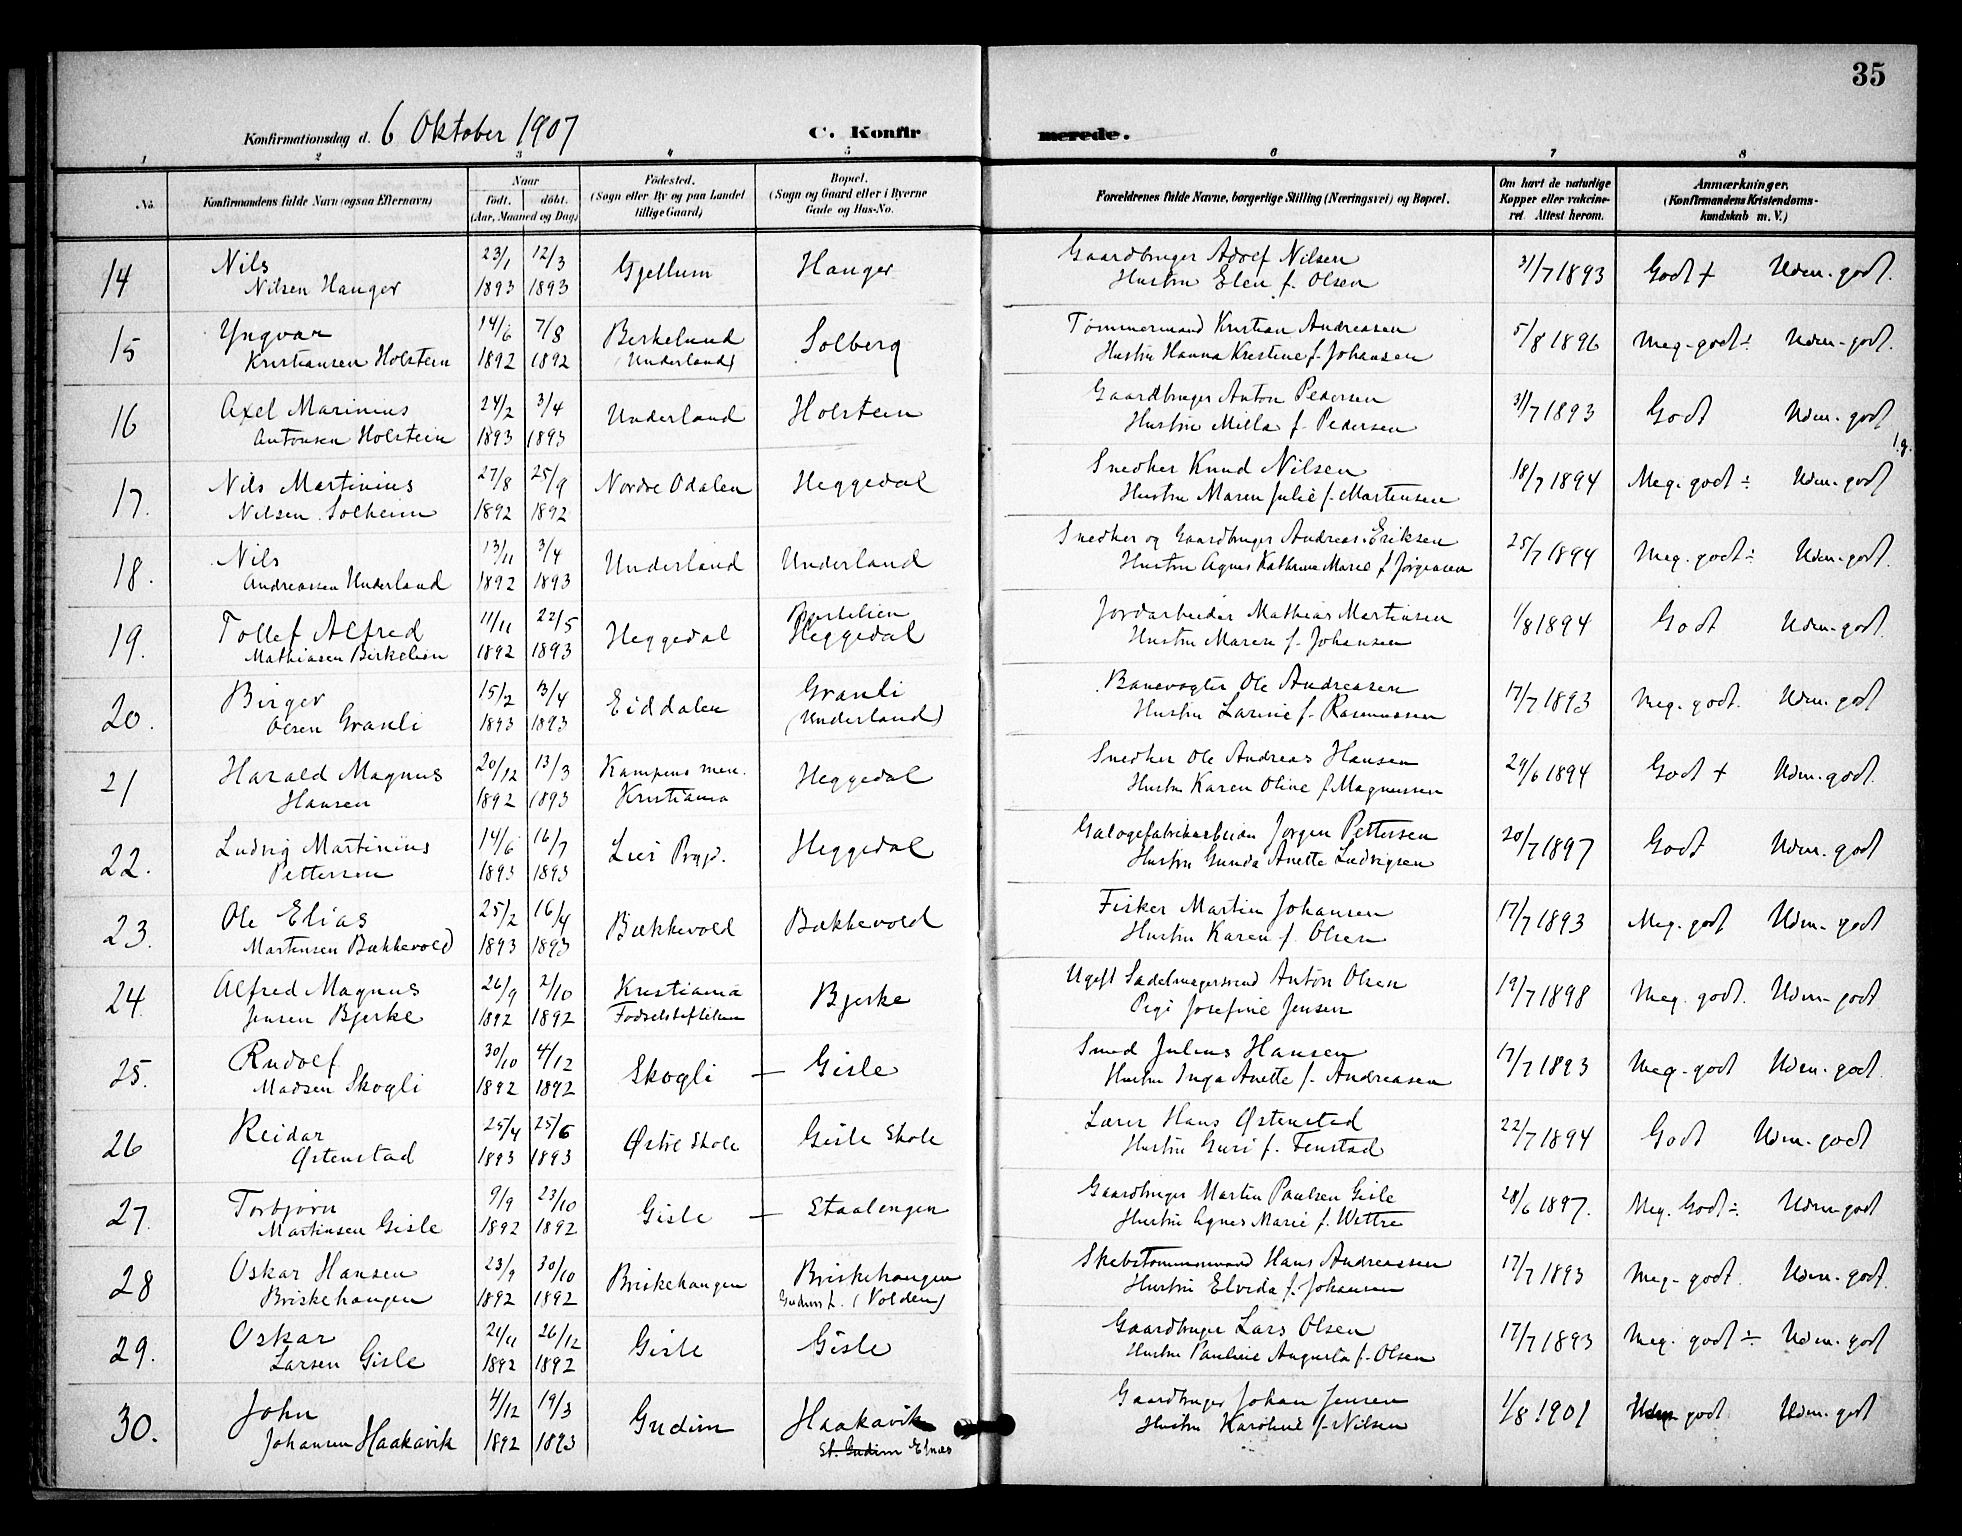 35
Konfirmationsdag d. 6 Oktober 1907
C. Konfirmerede.
1 2 3 4 5 6 7 8
No.
Konfirmandens fulde Navn (ogsaa Efternavn)
Naar
født. døbt.
(Aar, Maaned og Dag)
Fødested.
(Sogn eller By og paa Landet
tillige Gaard)
Bopæl.
(Sogn og Gaard eller i Byerne
Gade og Hus-No.
Forældrenes fulde Navne, borgerlige Stilling (Næringsvei) og Bopæl.
Om havt de naturlige
Kopper eller vakcine-
ret. Attest herom.
Anmærkninger.
(Konfirmandens Kristendoms-
kundskab m. V.)
14 Nils 23/1 12/3 Gjellum Hanger Gaardbruger Adolf Nilsen 31/7 1893 Godt + Udm. godt.
Nilsen Hanger 1893 1893 Hustru Elen f. Olsen
15 Yngvar 14/6 7/8 Berkelund Solberg Tømmermand Kristian Andreasen 5/8 1896 Meg. godt ÷ Udm. godt.
Kristiansen Holstein 1892 1892 (Underland) Hustru Hanna Kristine f. Johansen
16 Axel Marinius 24/2 3/4 Underland Holstein Gaardbruger Anton Pedersen 31/7 1893 Godt Udm. godt
Antonsen Holstein 1893 1893 Hustru Milla f. Pedersen
17. Nils Martinius 27/8 25/9 Nordre Odalen Heggedal Snedker Knud Nilsen 18/7 1894 Meg. godt ÷ Udm. godt
Nilsen Solheim 1892 1892 Hustru Maren Julie f. Martensen
18. Nils 13/11 3/4 Underland Underland Snedker og Gaardbruger Andreas Eriksen 25/7 1894 Meg. godt ÷ Udm. godt.
Andreassen Underland 1892 1893 Hustru Agnes Kathrine Marie f. Jørgensen
19. Tollef Alfred 11/11 22/5 Heggedal Heggedal Jordarbeider Mathias Martinsen 1/8 1894 Godt Udm. godt.
Mathiasen Birkelien 1892 1893 Hustru Maren f. Johansen
20. Birger 15/2 3/4 Eiddalen Granli Banevogter Ole Andreasen 17/7 1893 Meg. godt. Udm. godt
Olsen Granli 1893 1893 (Underland) Hustru Larine f. Rasmussen
21 Harald Magnus 20/12 13/3 Kampens men. Heggedal Snedker Ole Andreas Hansen 29/6 1894 Godt + Udm. godt.
Hansen 1892 1893 Kristiania Hustru Karen Oline f. Magnussen
22. Ludvig Martinius 14/6 16/7 Lier Prgjd. Heggedal Galogefabrikarbeider Jørgen Pettersen 20/7 1897 Godt Udm. godt
Pettersen 1893 1893 Hustru Gunda Anette Ludvigsen
23. Ole Elias 25/2 16/4 Bækkevold Bækkevold Fisker Martin Johansen 17/7 1893 Meg. godt Udm. godt
Martinsen Bækkevold 1893 1893 Hustru Karen f. Olsen
24. Alfred Magnus 26/9 2/10 Kristiania Bjerke Ugift Sadelmagersvend Anton Olsen 19/7 1898 Meg. godt. Udm. godt.
Jensen Bjerke 1892 1892 Fødselsstiftelsen Pige Josefine Jensen
25. Rudolf 30/10 4/12 Skogli — Gisle Smed Julius Hansen 17/7 1893 Meg. godt Udm. godt.
Madsen Skogli 1892 1892 Hustru Inga Anette f. Andreasen
26 Reidar 25/4 25/6 Østre Skole Gisle Skole Lærer Hans Østenstad 22/7 1894 Godt Udm. godt
Østenstad 1893 1893 Hustru Guri f. Fenstad
27. Torbjørn 9/9 23/10 Gisle — Staalengen Gaardbruger Martin Paulsen Gisle 28/6 1897. Meg. Godt ÷ Udm. godt
Martinsen Gisle 1892 1892 Hustru Agnes Marie f. Wettre
28 Oskar Hansen 23/9 30/10 Briskehaugen Briskehaugen Skibstømmermand Hans Andreassen 17/7 1893 Meg. godt. Udm. godt.
Briskehaugen 1892 1892 (Volden) Hustru Elvida f. Johansen
29. Oskar 21/11 26/12 Gisle Gisle Gaardbruger Lars Olsen 17/7 1893 Meg. godt ÷ Udm. godt
Larsen Gisle 1892 1892 Hustru Pauline Augusta f. Olsen
30. John 4/12 19/3 Gudim Haakavik Gaardbruger Johan Jensen 1/8 1901 godt Udm. godt
Johansen Haakavik 1892 1893 St. Gudim Elnæs Hustru Karoline f. Nilsen